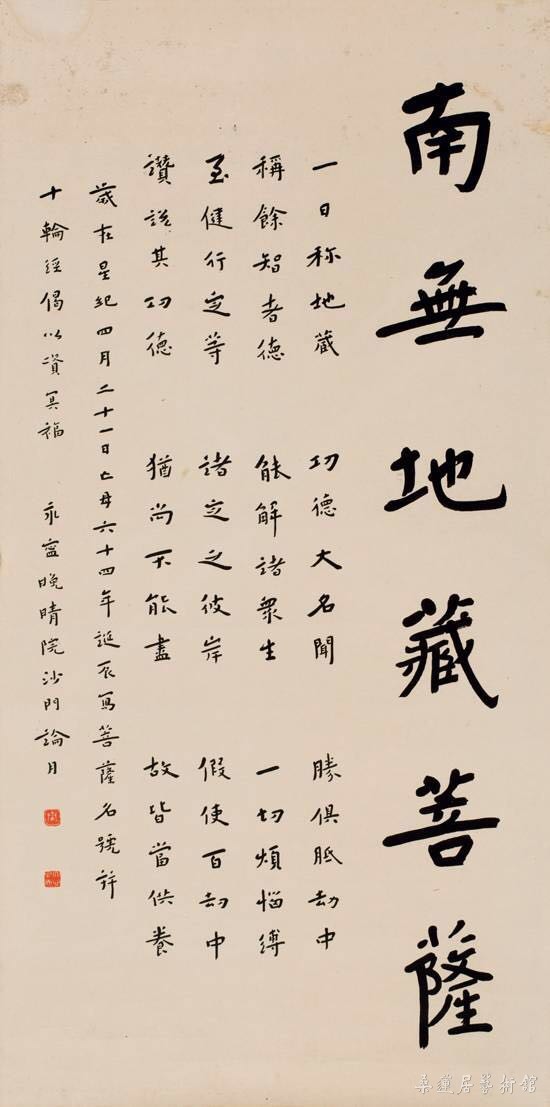 南無地藏菩薩
一日称地藏 功德大名聞 勝俱胝劫中
稱餘智者德 能解諸衆生 一切煩惱縛
至健行定等 諸定之彼岸 假使百劫中
讚說其功德 猶尚不能盡 故皆當供養
歲在星紀四月二十一日亡母六十四年誕辰寫菩薩名號并
十輪經偈以資冥福 永寧晚晴院沙門論月
桑蓮居藝術館